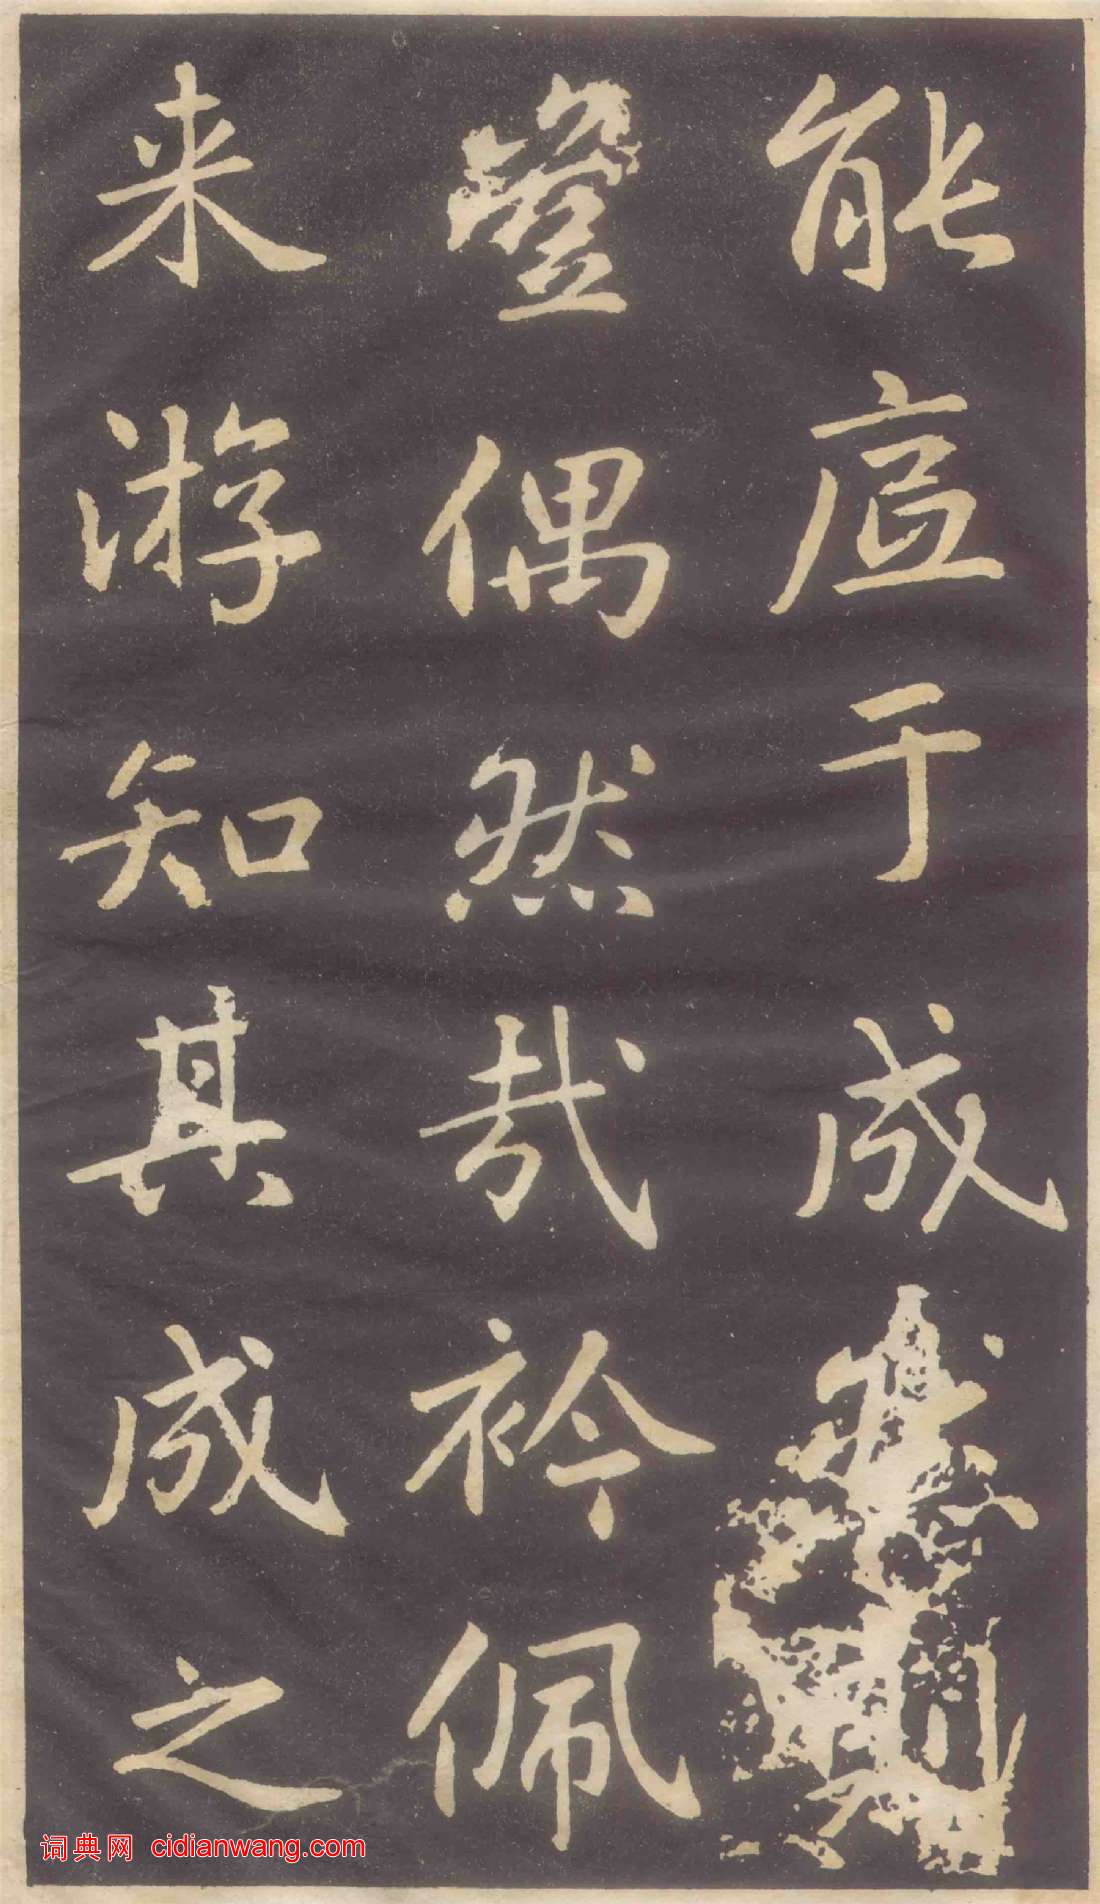 能底于成
豈偶然哉衿佩
来游知其成之
词典网 cidianwang.com